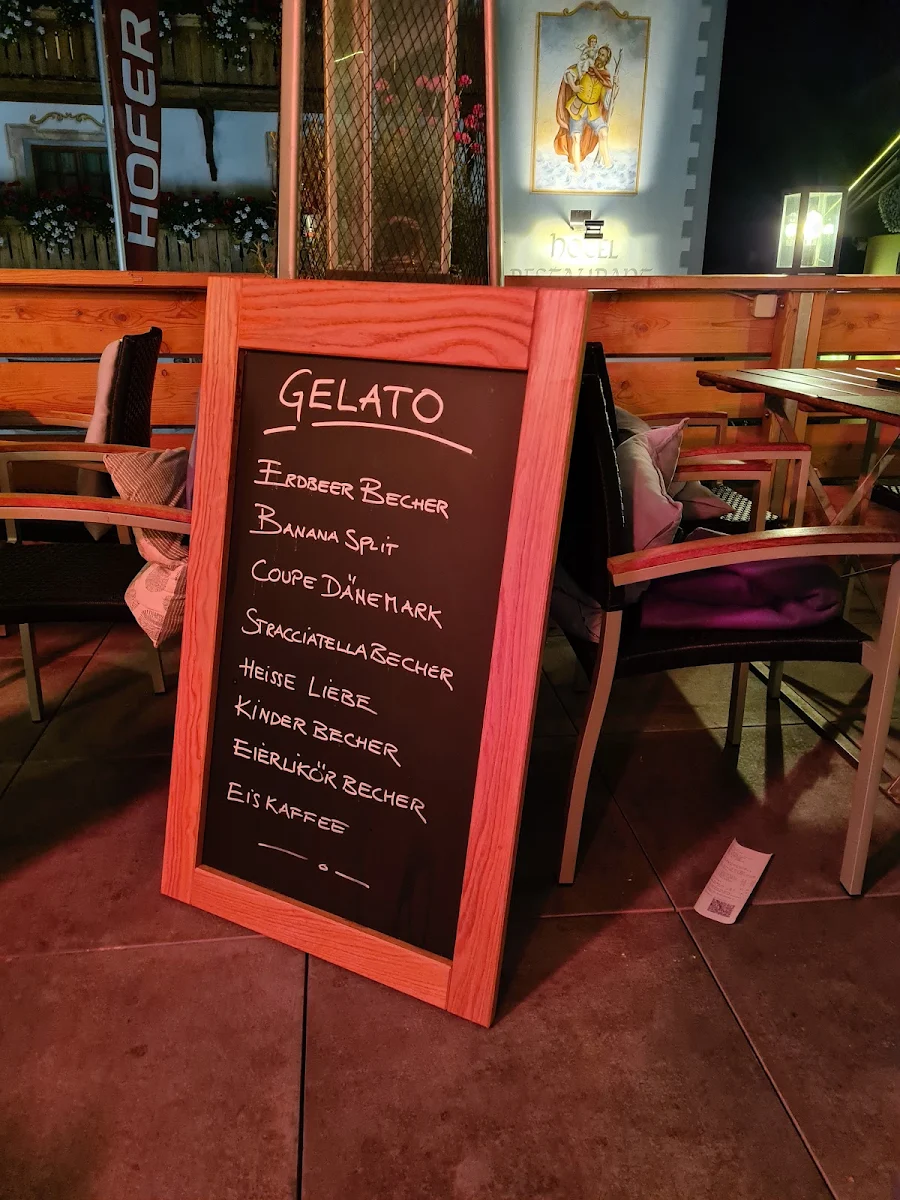 HOFER
HOTEL
RESTAURANT
GELATO
ERDBEER BECHER
BANANA SPLIT
COUPE DÄNEMARK
STRACCIATELLA BECHER
HEISSE LIEBE
KINDER BECHER
EIERLIKÖR BECHER
EISKAFFEE